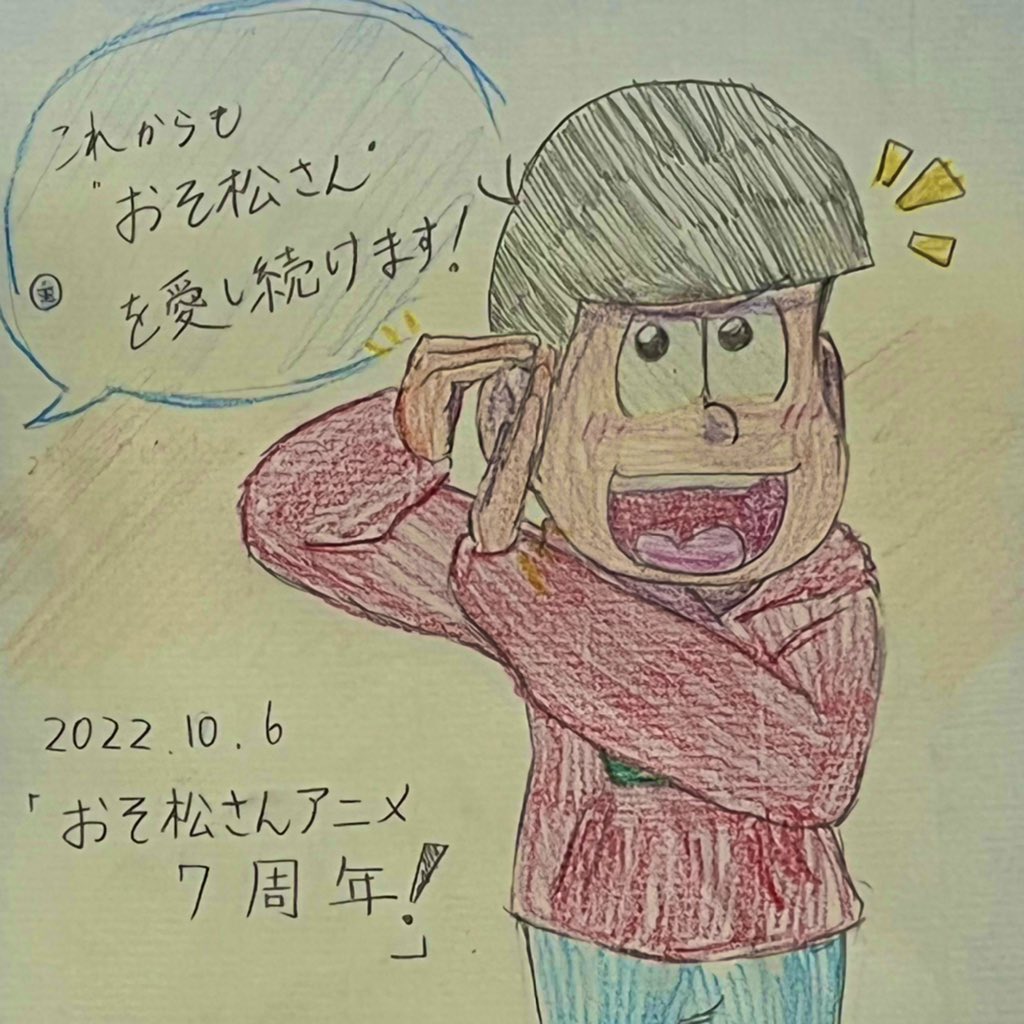 これからも
"おそ松さん"
を愛し続けます!
2022.10.6
「おそ松さんアニメ
7周年!」